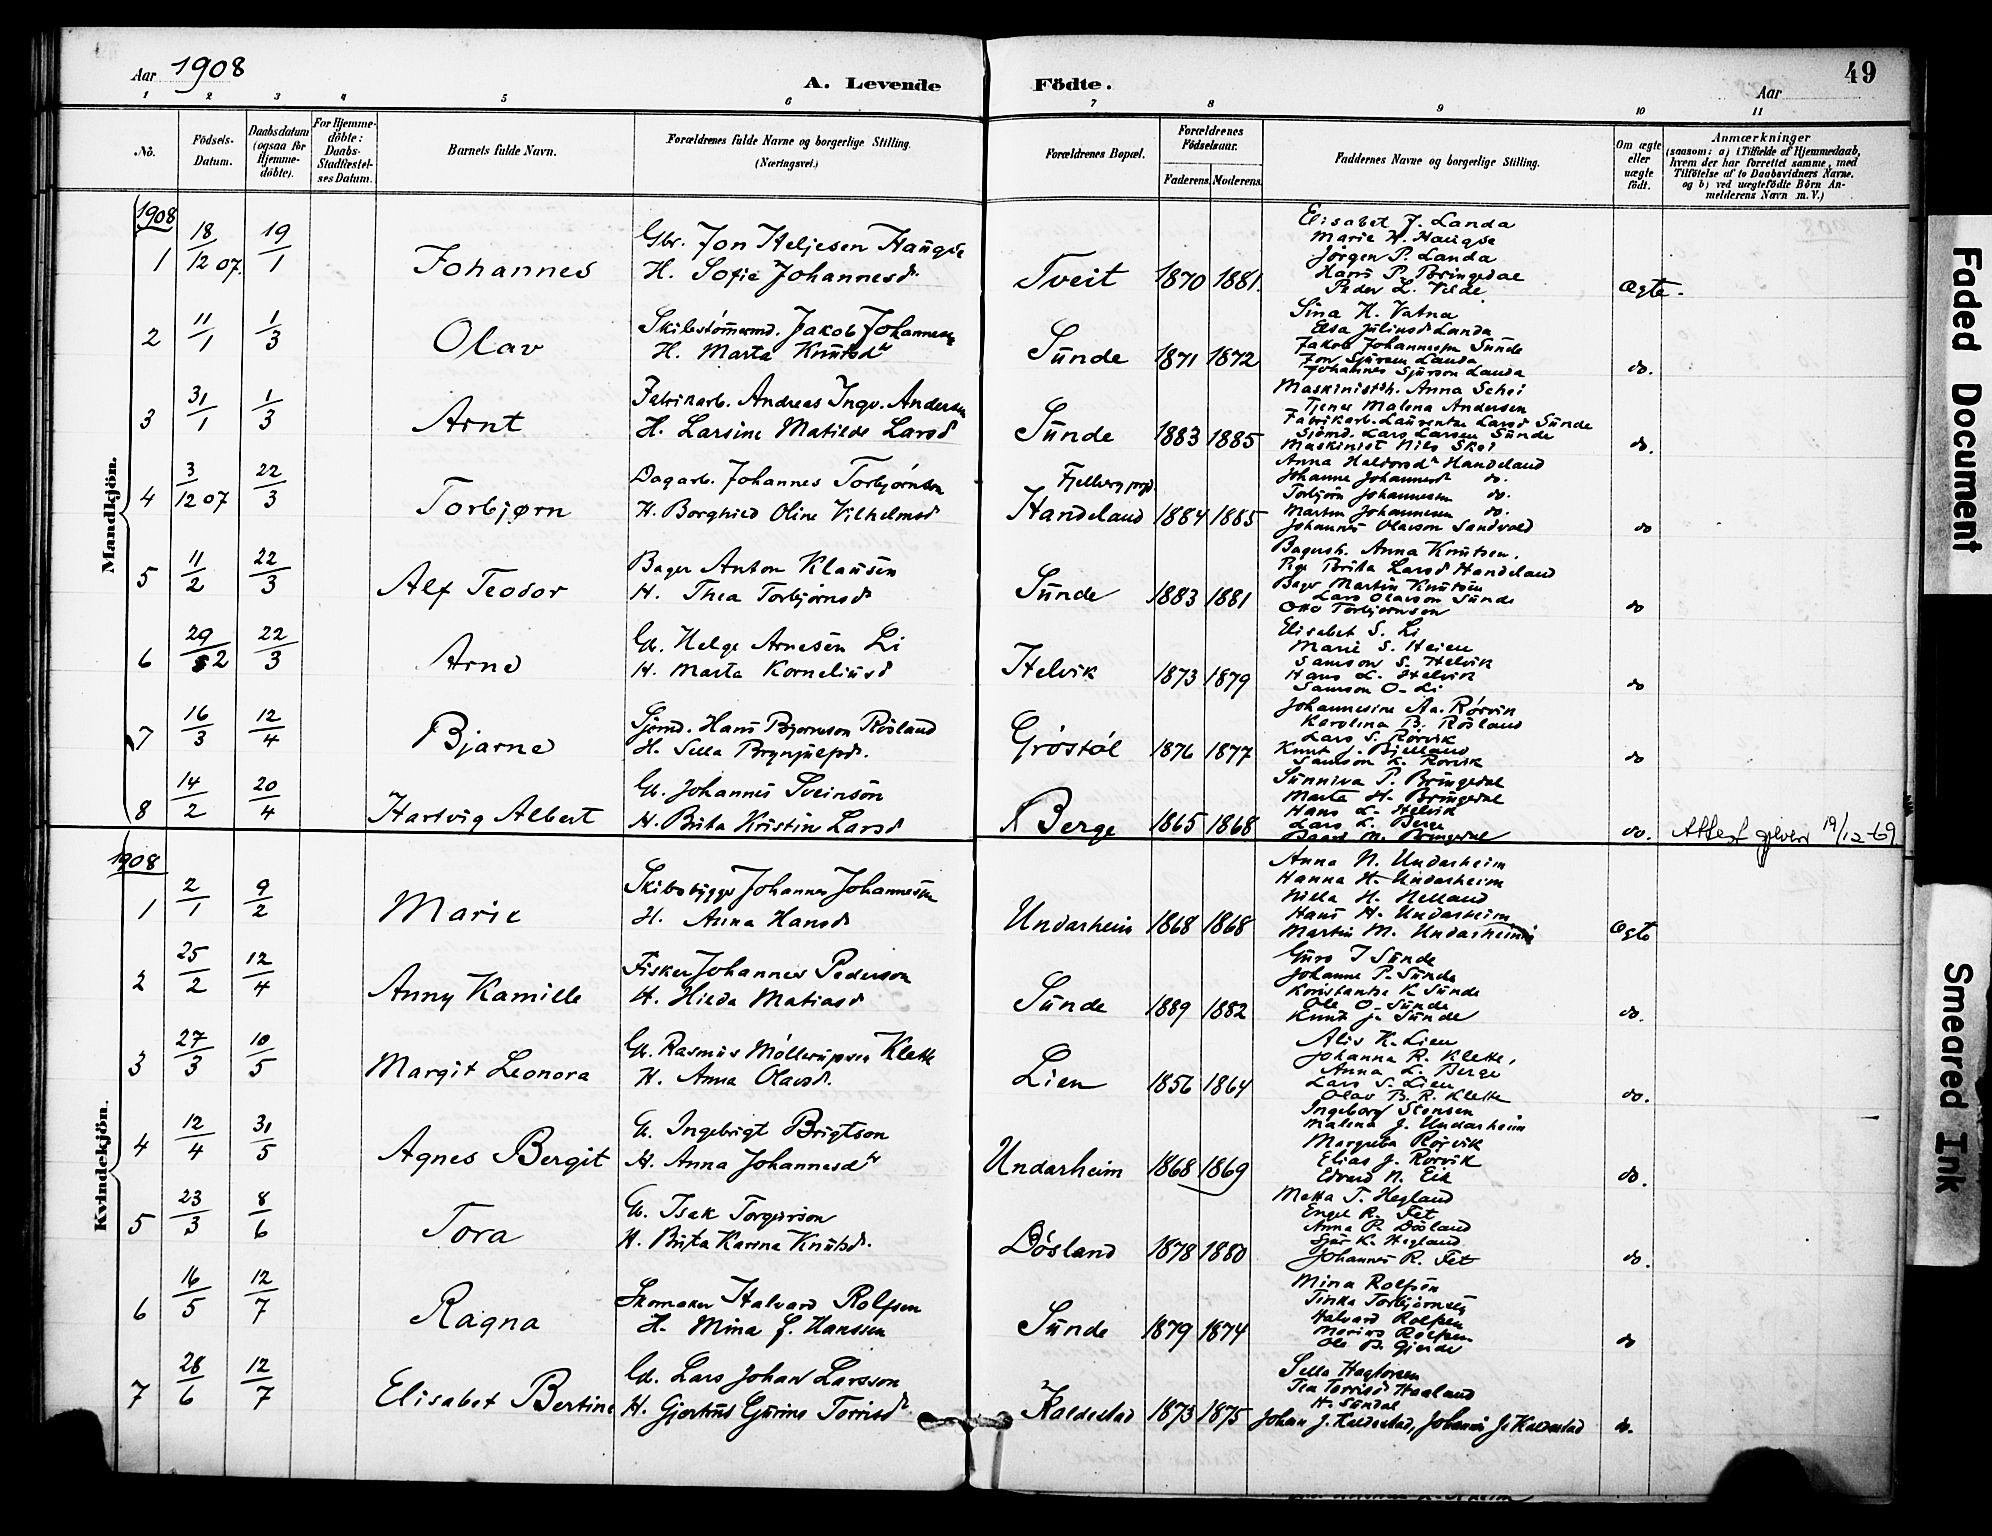 Aar 1908
A. Levende
Födte.
49
Aar
1 2 3 4 5 6 7 8 9 10 11
No.
Födsels-Datum.
Daabsdatum (ogsaa for Hjemme-döbte).
For Hjemme-döbte: Daabs-Stadfæstel-ses Datum.
Barnets fulde Navn.
Forældrenes fulde Navne og borgerlige Stilling. (Næringsvei.)
Forældrenes Bopæl.
Forældrenes Födselsaar.
Faderens. Moderens.
Faddernes Navne og borgerlige Stilling.
Om ægte eller uægte födt.
Anmærkninger
(saasom: a) i Tilfælde af Hjemmedaab,
hvem der har forrettet samme, med
Tilföielse af to Daabsvidners Navne.
og b) ved uægtefödte Börn An-
melderens Navn m. V.)
Mandkjön.
1908
1 18/12 07. 19/1 Johannes
Gbr. Jon Heljesen Haugse
H. Sofie Johannesdr.
Tveit 1870 1881.
Elisabet J. Landa
Marie H. Haugse
Jørgen P. Landa
Hans P. Bringedal
Peder L. Velde
Ægte.
2 11/1 1/3 Olav
Skibstömermd. Jakob Johannesen
H. Marta Knutsdr
Sunde 1871 1872
Sina H. Vatna
Elsa Juliusdr Landa
Jakob Johannessen Sunde
Jon Sjurson Landa
Johannes Sjurson Landa
do.
3 31/1 1/3 Arnt
Fabrikarb. Andreas Ingv. Andersen
H. Larsine Matilde Larsdr
Sunde 1883 1885
Maskinisth. Anna Schei
Tjener Malena Andersen
Fabrikarb. Laurentse Larsdr Sunde
Sjömd. Lars Larsen Sunde
Maskinist Nils Skei
do.
4 3/12 07 22/3 Torbjørn
Dagarb. Johannes Torbjørnson
H. Borghild Oline Vilhelmsdr
Fjelberg prgd.
Handeland 1884 1885
Anna Haldorsdr Handeland
Johanne Johannesdr do.
Torbjörn Johannessen do.
Martin Johannesen do.
Johannes Olavson Sandvold
do
5 11/2 22/3 Alf Teodor
Bager Anton Klausen
H. Thea Torbjørnsdr
Sunde 1883 1881
Bagersh. Anna Knutsen.
Pige Brita Larsdr Handeland
Bager Martin Knutsen
Lars Olavson Sunde
Otto Torbjørnson
do
6 29/2 22/3 Arne
Gb. Helge Arnesen Li
H. Marta Korneliusdr
Helvik 1873 1879
Elisabet S. Li
Marie S. Heien
Samson S. Helvik
Hans L. Helvik
Samson O. Li
do
7 16/3 12/4 Bjarne
Sjömd. Hans Bjørnson Røsland
H. Sella Brynjulfsdr.
Grøstøl 1876 1877
Johannesine Aa. Rørvik
Karolina B. Røsland
Lars S. Rørvik
Knut J. Bjelland
Samson K. Rørvik
do
8 14/2 20/4 Hartvig Albert
Gb. Johannes Sveinson
H. Brita Kristine Larsdr
Berge 1865 1868
Sunniva P. Bringedal
Marta H. Bringedal
Hans L. Helvik
Lars L. Berge
Baard M. Bringedal
do.
Attest gjeven 19/12-69
Kvindekjön.
1908
1 2/1 9/2 Marie
Skibsbygger Johannes Johannessen
H. Anna Hansdr
Undarheim 1868 1868
Anna N. Undarheim
Hanna H. Undarheim
Nilla H. Helland
Hans H. Undarheim
Martin M. Undarheim
Ægte
2 25/2 12/4 Anny Kamille
Fisker Johannes Pederson
H. Hilda Matiasdr
Sunde 1889 1882
Guro J Sunde
Johanne P. Sunde
Konstanse K Sunde
Ole O. Sunde
Knut J. Sunde
do.
3 27/3 10/5 Margit Leonora
Gb. Rasmus Möllerupsen Klette
H. Anna Olavsdr.
Lien 1856 1864
Alis K. Lien
Johanna R. Klette,
Anna L. Berge
Lars S. Lien
Olav B. R. Klette
do.
4 12/4 31/5 Agnes Bergit
G. Ingebrigt Brigtson
H. Anna Johannesdr
Undarheim 1868 1869
Ingeborg Stensen
Malena J. Undarheim
Margreta Rørvik
Elias J. Rørvik
Edvard N. Eik
do.
5 23/3 8/6 Tora
G. Isak Torgerson
H. Brita Karina Knutsdr.
Døsland 1878 1880
Metta T. Hegland
Engel R. Fet
Anna P. Døsland
Sjur K. Hegland.
Johannes R. Fet
do.
6 16/5 12/7 Ragna
Skomaker Halvard Rolfsen
H. Mina J. Hanssen
Sunde 1879 1874
Mina Rolfsen
Halvard Rolfsen
Ole B. Gjerde
do
7 28/6 12/7 Elisabet Bertine
Gd. Lars Johan Larsson
H. Gjertrud Gurine Torrisdr
Kaldestad 1873 1875
Sella Hagtorsen
Tea Torrisdr Haaland
H. Sundal
Johan J. Kaldestad, Johannes J. Kaldestad
do.
Faded Document
Smeared Ink